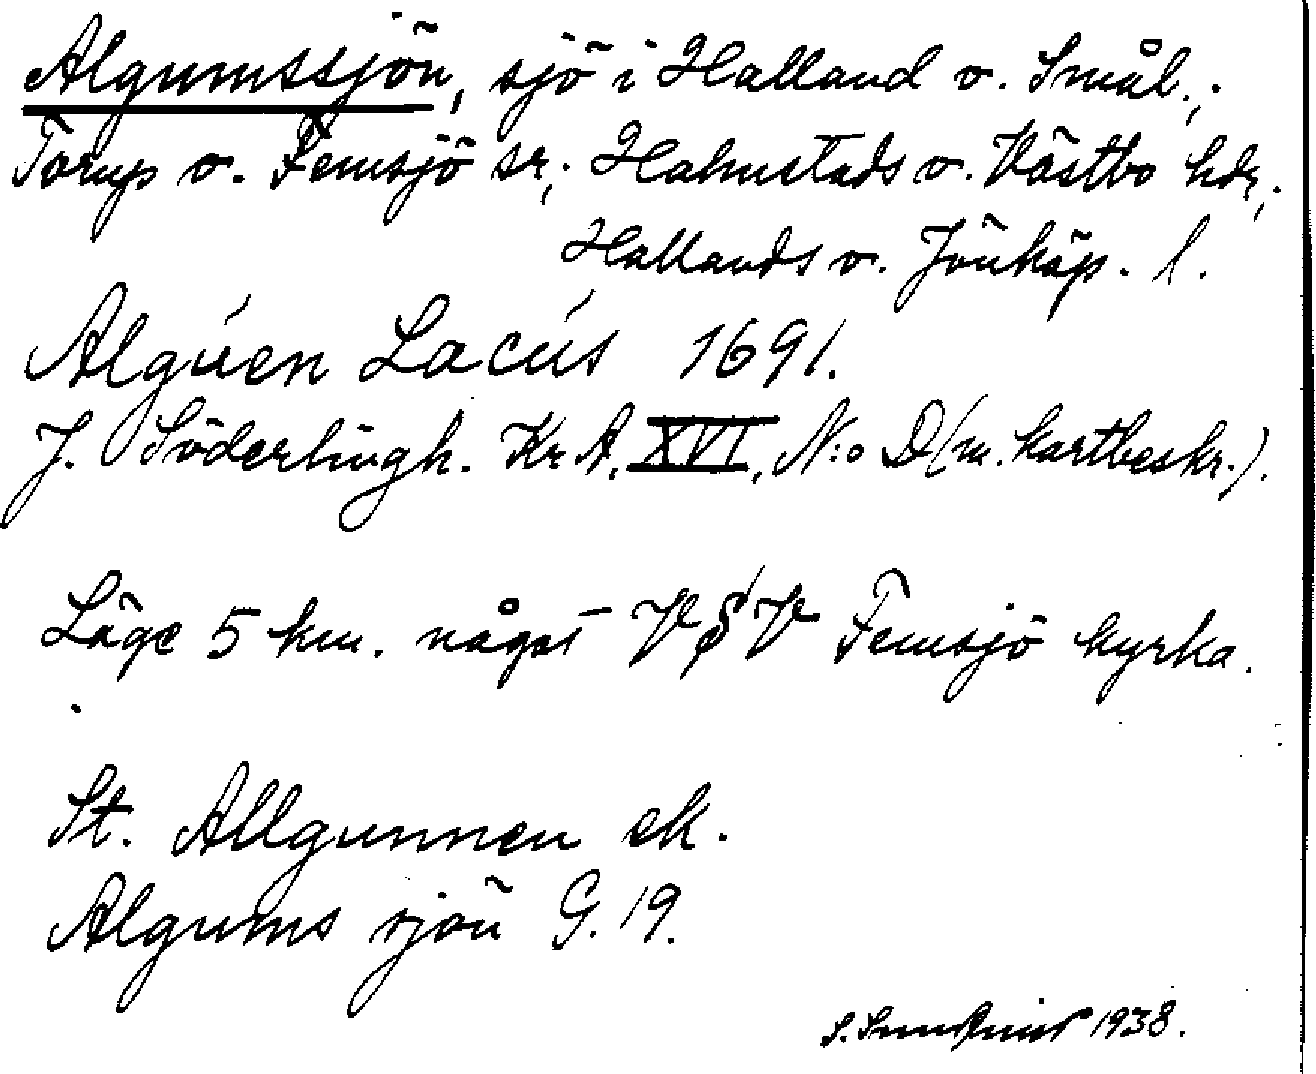 Algumssjön, sjö i Halland o. Smål.;
Torup o. Femsjö sr; Halmstads o. Västbo hdr;
Hallands o. Jönköp. l.
Algúen Lacús 1691.
J. Söderlingh. Kr A, XVI, N:o D (m. kartbeskr.).
Läge 5 km. något VSV Femsjö kyrka.
St. Allgunnen ek.
Algums sjön G. 19.
S. 1938.